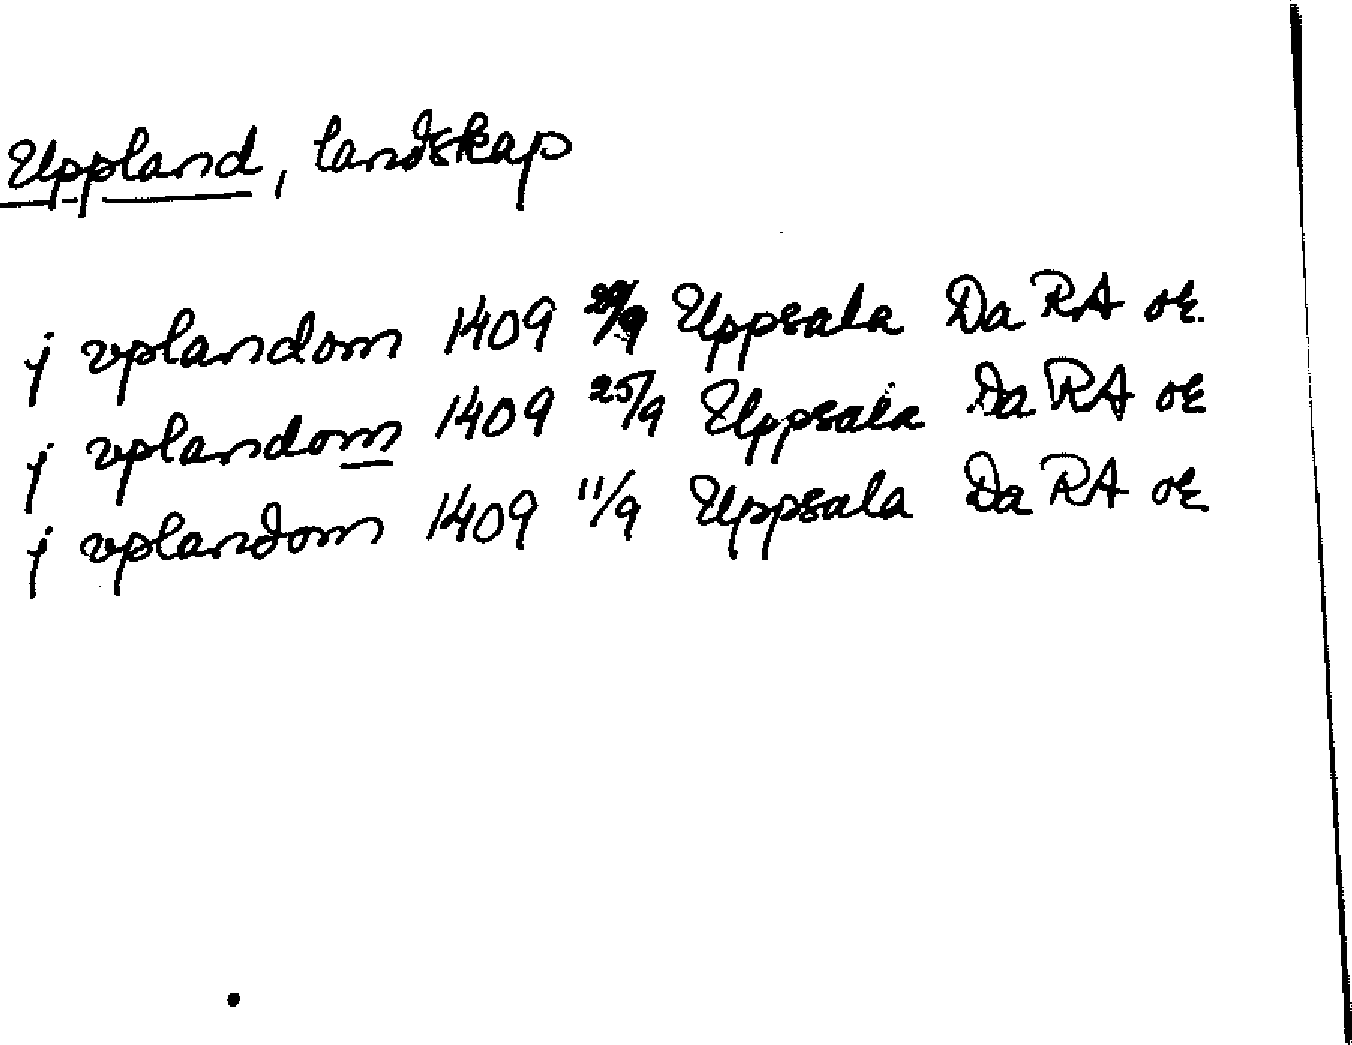 Uppland, landskap
j vplandom 1409 29/9 Uppsala Da RA or.
j vplandom 1409 25/9 Uppsala Da RA or
j vplandom 1409 11/9 Uppsala Da RA or